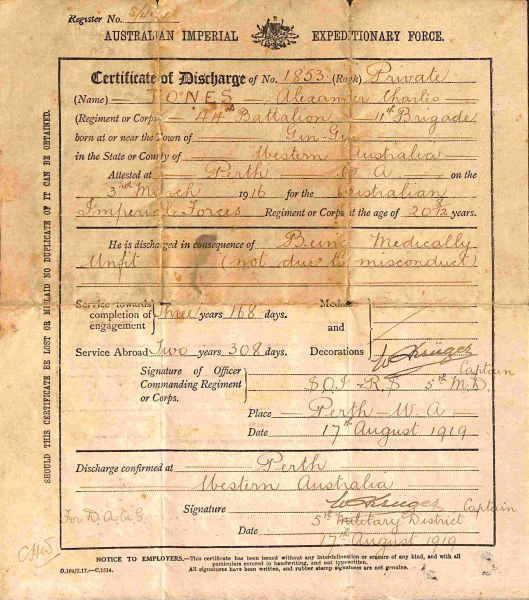 Register No.
AUSTRALIAN IMPERIAL EXPEDITIONARY FORCE.
Certificate of Discharge of No. 1853 (Rank) Private
(Name) JONES Alexander Charles
(Regiment or Corps) 44th Battalion 11th Brigade
born at or near the Town of Gin-Gin
in the State or County of Western Australia
Attested at Perth W A on the
3rd March 1916 for the Australian
Imperial Forces Regiment or Corps at the age of 20 years.
He is discharged in consequence of Being Medically
Unfit (not due to misconduct)
Service towards completion of engagement } Three years 168 days.
Medals and Decorations {
Service Abroad Two years 308 days.
Signature of Officer Commanding Regiment or Corps. } W Kruger Captain
S.O.I & R.S 5th M.D.
Place Perth W. A
Date 17th August 1919
Discharge confirmed at Perth
Western Australia
Signature W Kruger Captain
5th Military District
Date 17th August 1919
For D.A.A.G.
NOTICE TO EMPLOYERS.—This certificate has been issued without any interdelineation or erasure of any kind, and with all
particulars entered in handwriting, and not typewritten.
D.164/2.17.—C.1514. All signatures have been written, and rubber stamp signatures are not genuine.
SHOULD THIS CERTIFICATE BE LOST OR MISLAID NO DUPLICATE OF IT CAN BE OBTAINED.